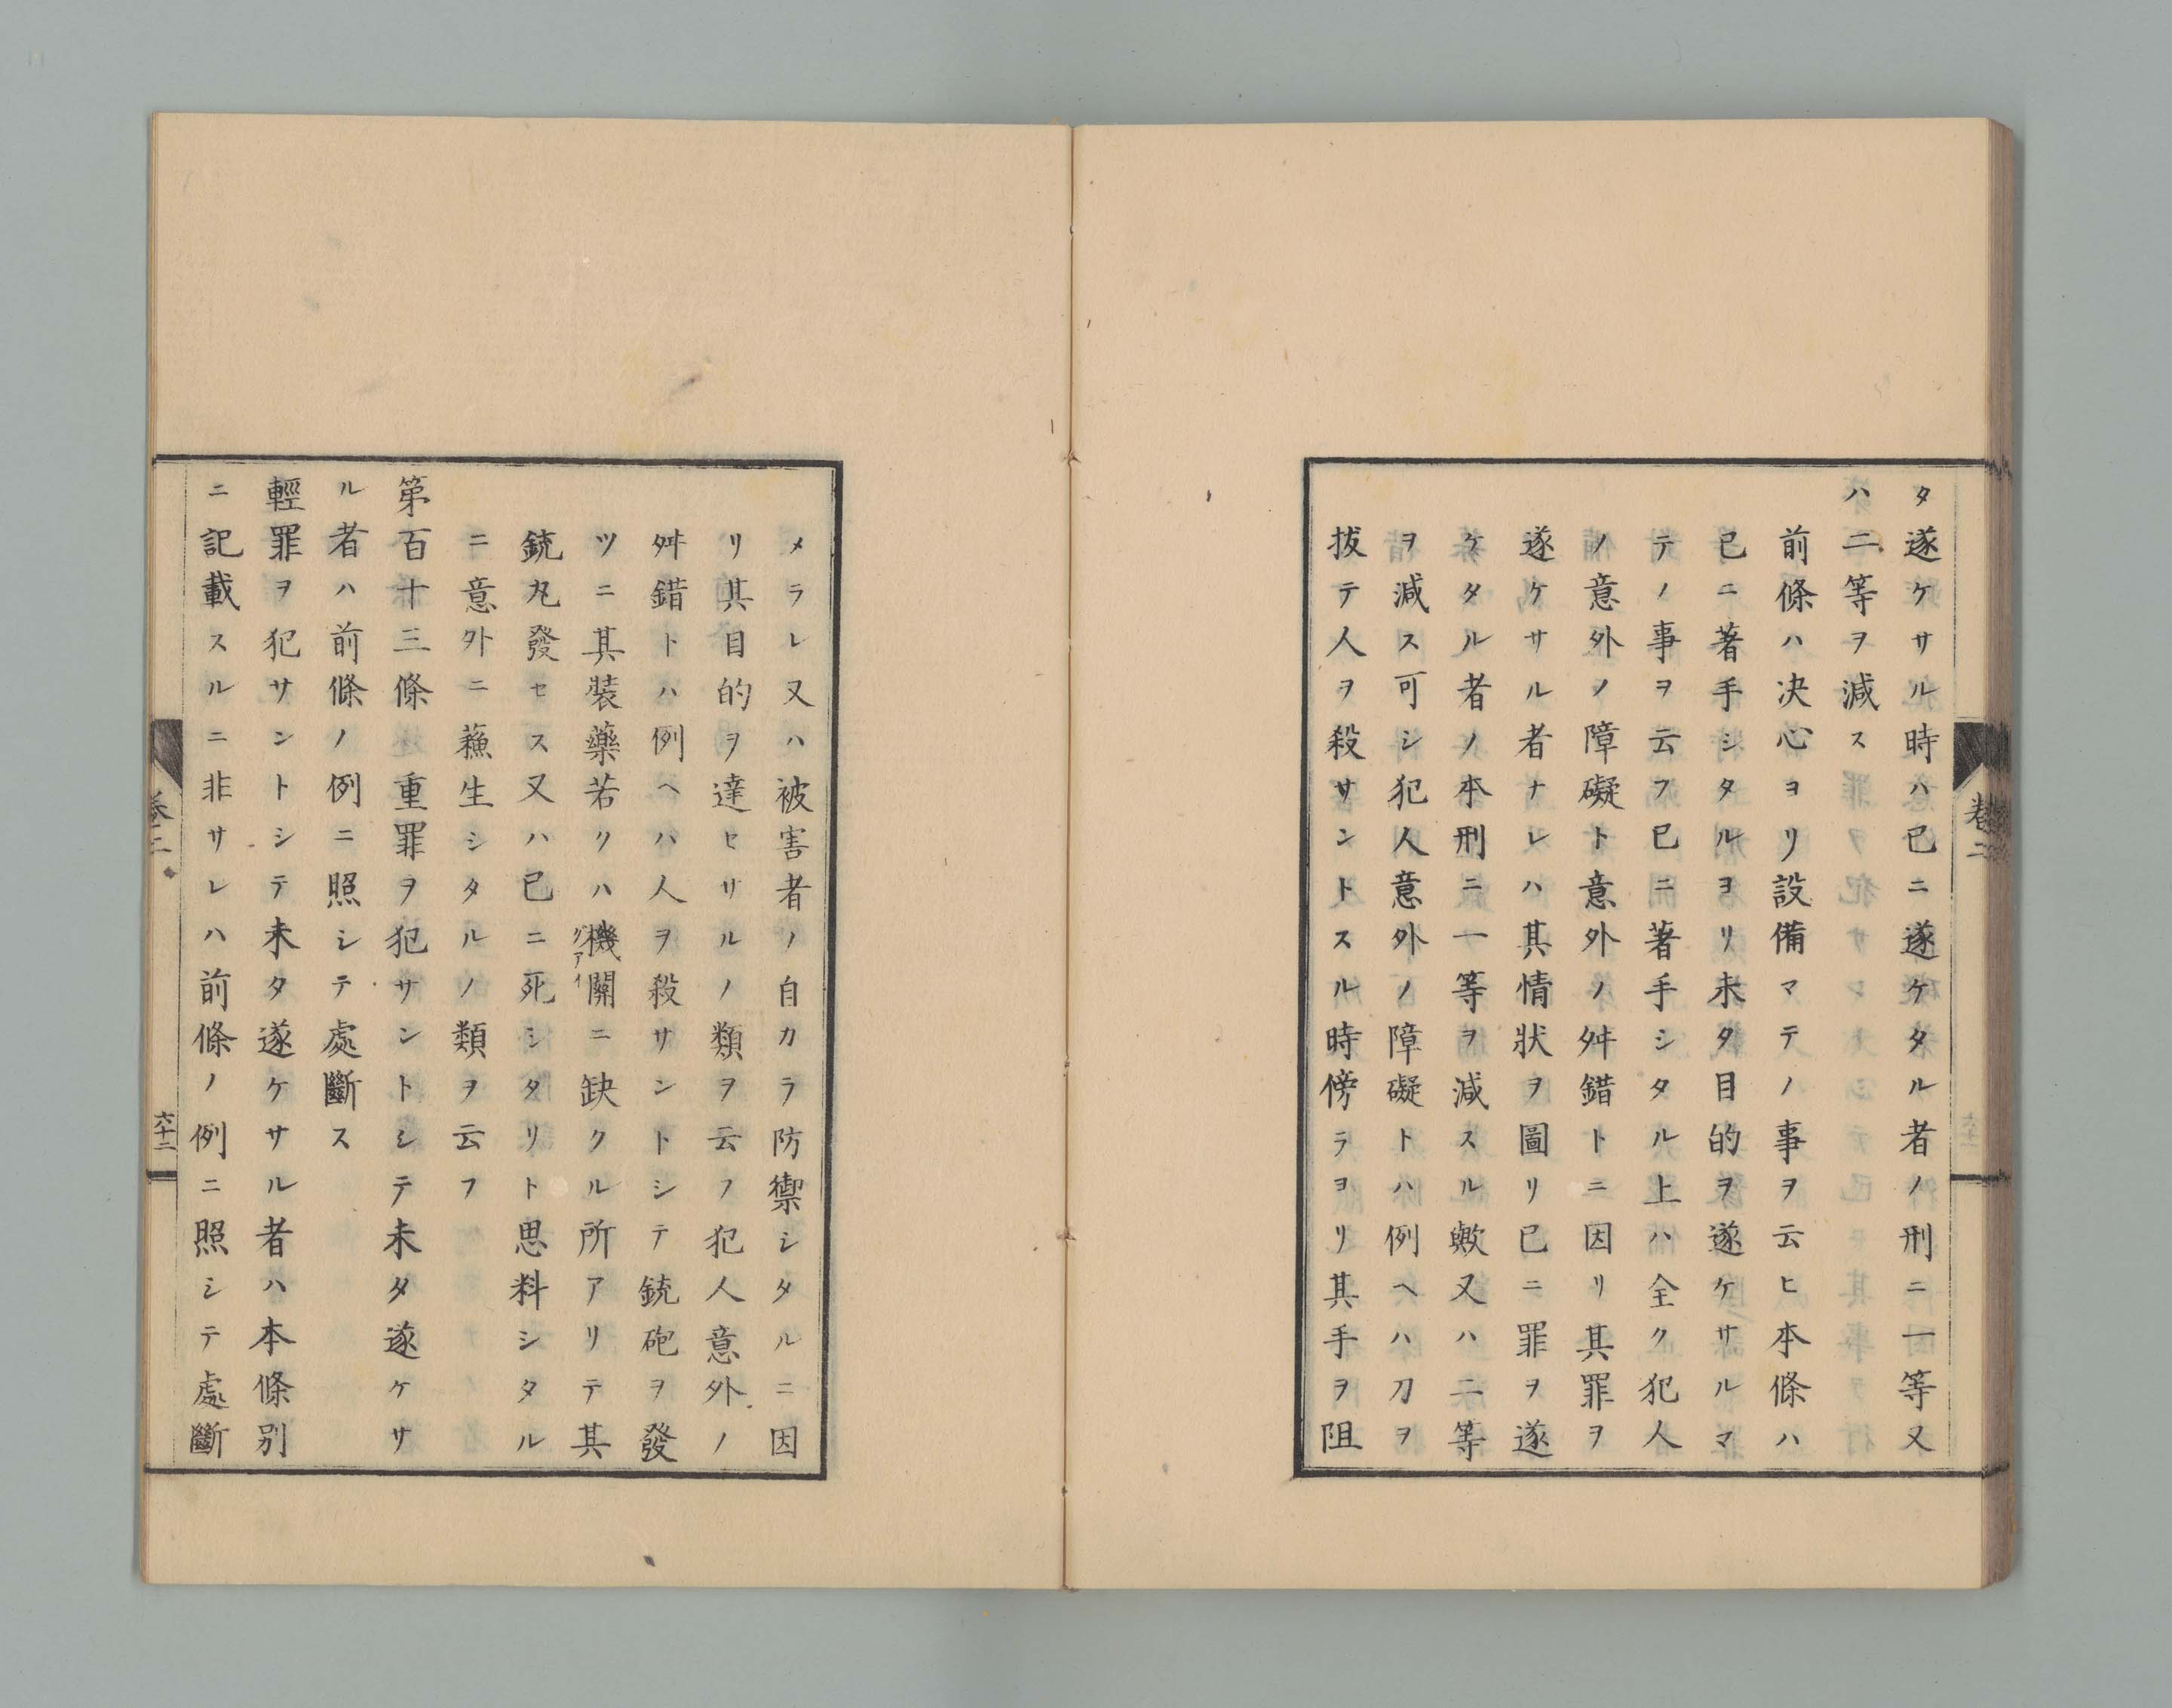 タ遂ケサル時ハ已ニ遂ケタル者ノ刑ニ一等又
ハ二等ヲ減ス
前條ハ决心ヨリ設備マテノ事ヲ云ヒ本條ハ
已ニ著手シタルヨリ未タ目的ヲ遂ケサルマ
テノ事ヲ云フ已ニ著手シタル上ハ全ク犯人
ノ意外ノ障礙ト意外ノ舛錯トニ因リ其罪ヲ
遂ケサル者ナレハ其情狀ヲ圖リ已ニ罪ヲ遂
ケタル者ノ本刑ニ一等ヲ減スル歟又ハ二等
ヲ減ス可シ犯人意外ノ障礙トハ例ヘハ刀ヲ
拔テ人ヲ殺サントスル時傍ラヨリ其手ヲ阻
卷二
メラレ又ハ被害者ノ自カラ防禦シタルニ因
リ其目的ヲ達セサルノ類ヲ云フ犯人意外ノ
舛錯トハ例ヘハ人ヲ殺サントシテ銃砲ヲ發
ツニ其裝藥若クハ機關ニ缺クル所アリテ其
グアイ
銃丸發セス又ハ已ニ死シタリト思料シタル
ニ意外ニ蘓生シタルノ類ヲ云フ
第百十三條 重罪ヲ犯サントシテ未タ遂ケサ
ル者ハ前條ノ例ニ照シテ處斷ス
輕罪ヲ犯サントシテ未タ遂ケサル者ハ本條別
ニ記載スルニ非サレハ前條ノ例ニ照シテ處斷
卷二
六十二